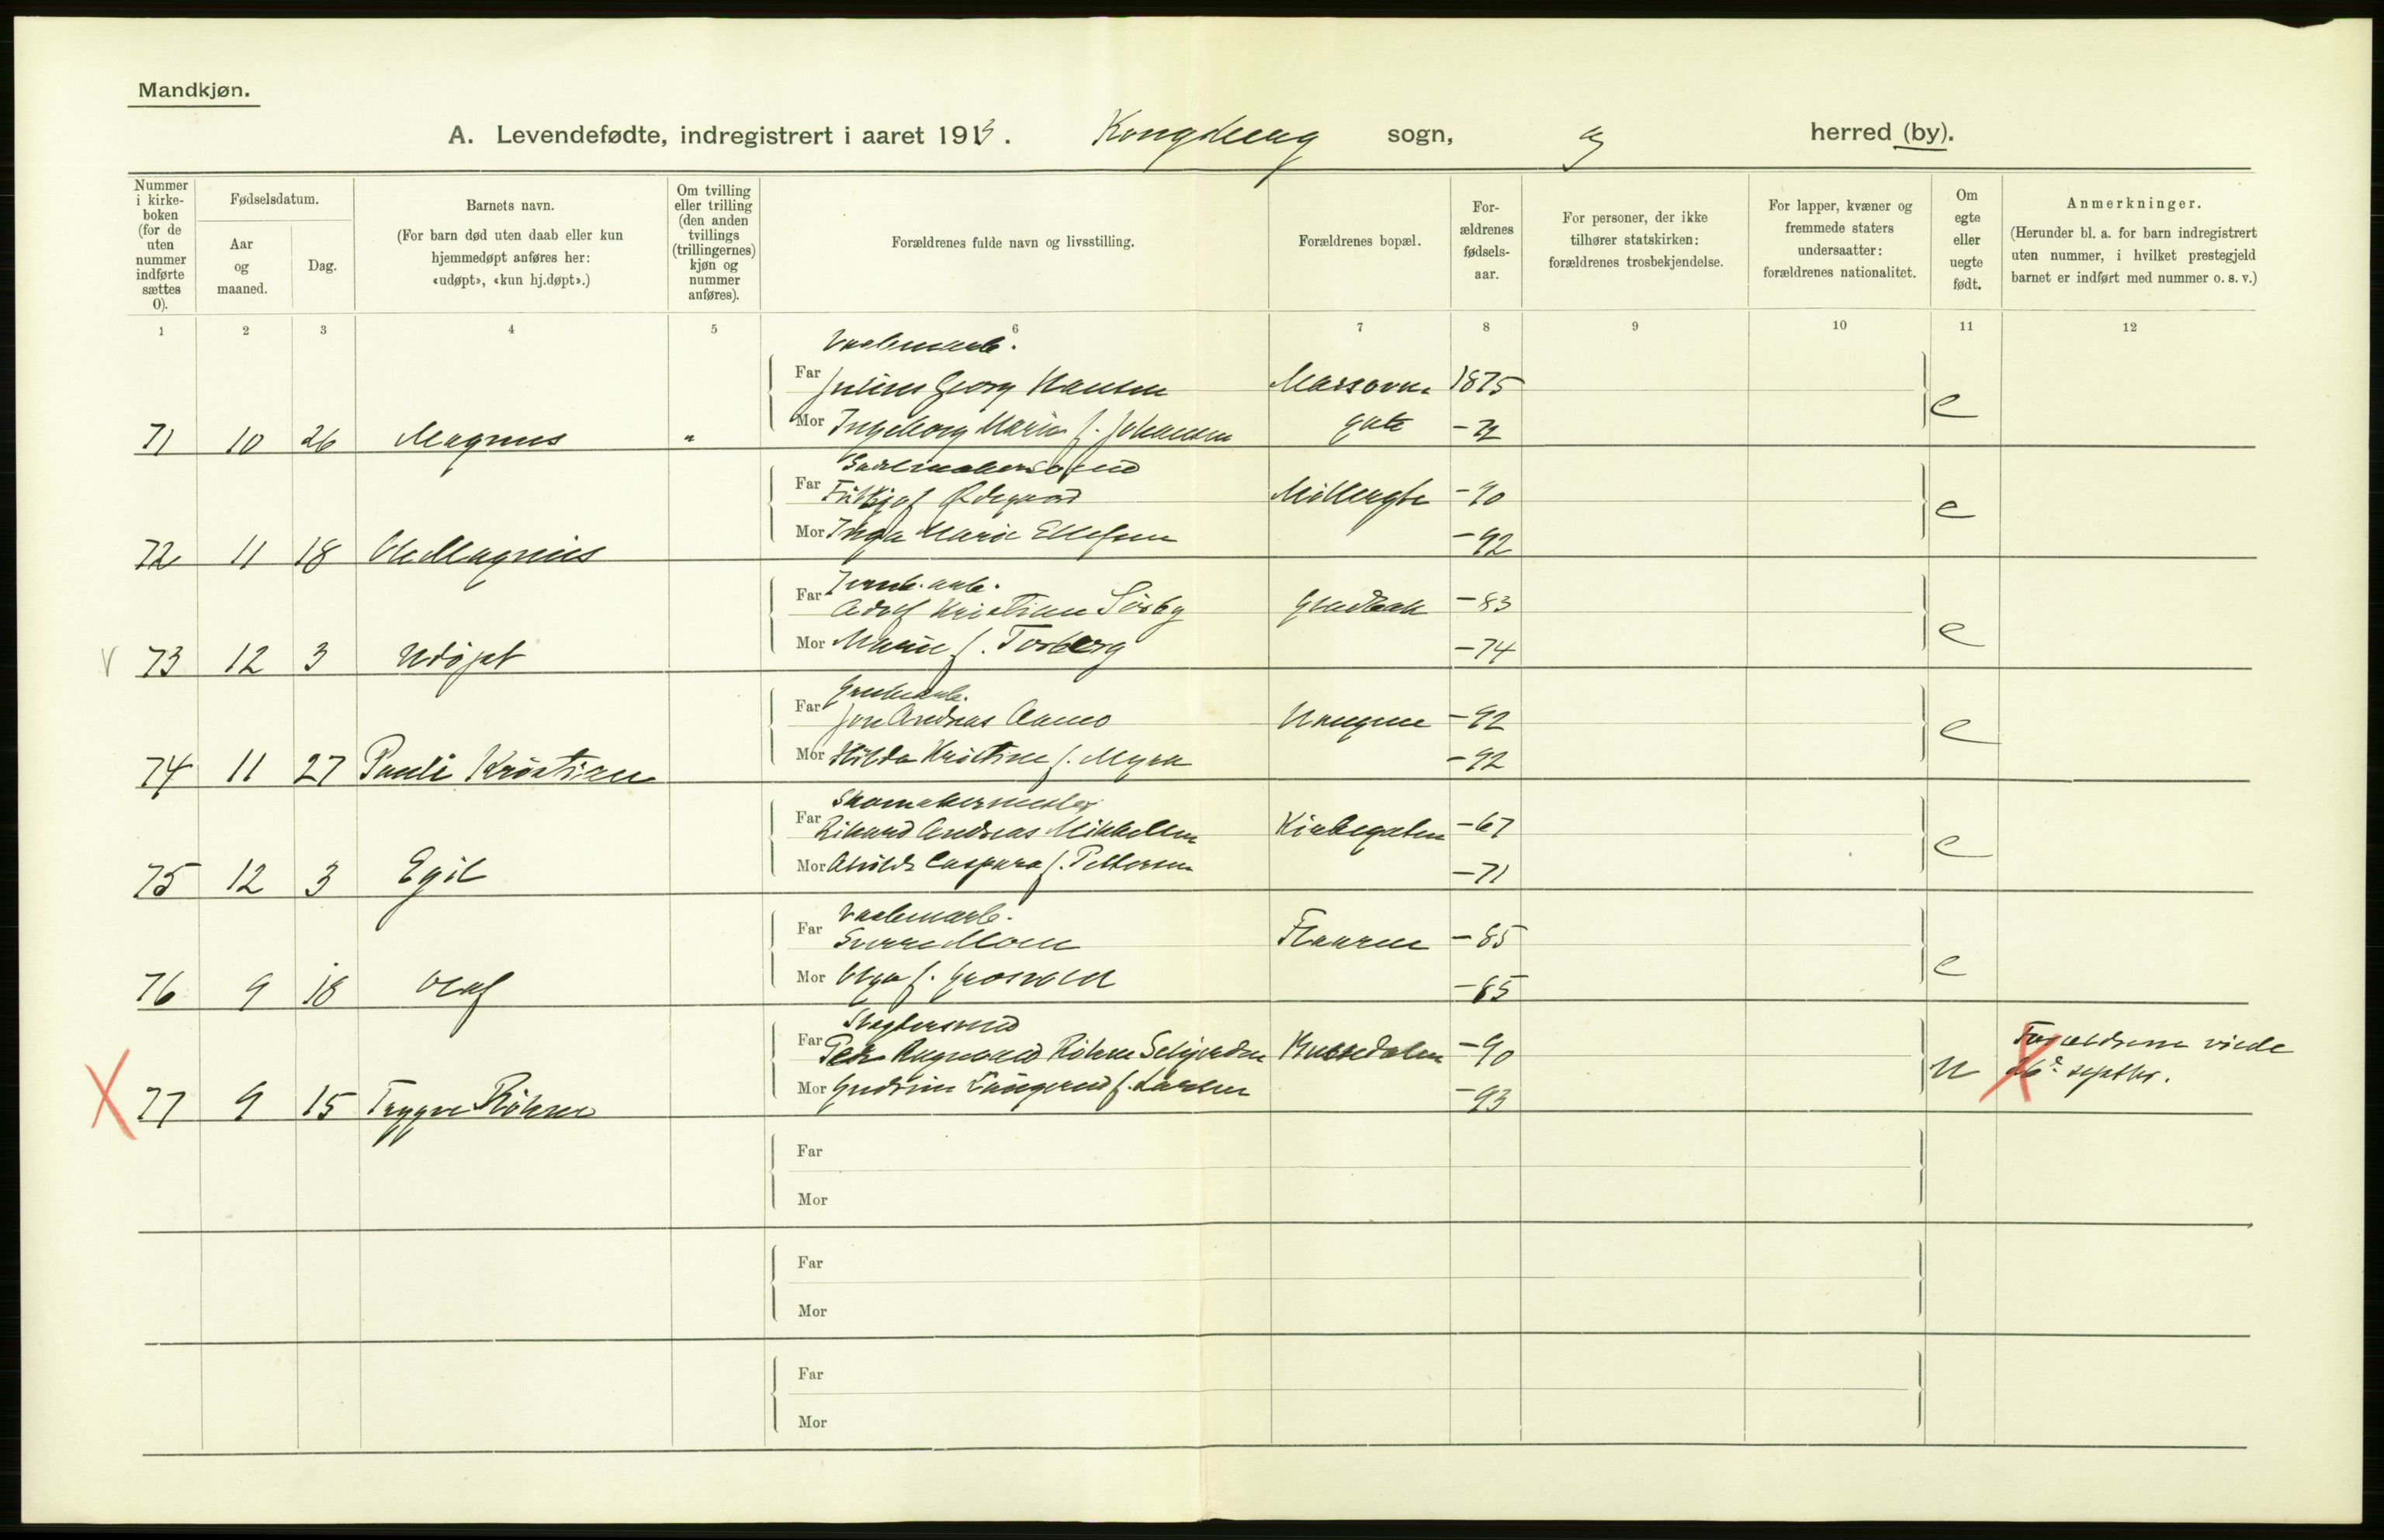 Mandkjøn.
A. Levendefødte, indregistrert i aaret 1913. Kongsberg sogn, herred (by).
Nummer i kirke-boken (for de uten nummer indførte sættes 0).
Fødselsdatum.
Aar og maaned.
Dag.
Barnets navn.
(For barn død uten daab eller kun hjemmedøpt anføres her: «udøpt», «kun hj.døpt».)
Om tvilling eller trilling (den anden tvillings (trillingernes) kjøn og nummer anføres).
Forældrenes fulde navn og livsstilling.
Forældrenes bopæl.
For-ældrenes fødsels-aar.
For personer, der ikke tilhører statskirken: forældrenes trosbekjendelse.
For lapper, kvæner og fremmede staters undersaatter: forældrenes nationalitet.
Om egte eller uegte født.
Anmerkninger.
(Herunder bl. a. for barn indregistrert uten nummer, i hvilket prestegjeld barnet er indført med nummer o. s. v.)
1 2 3 4 5 6 7 8 9 10 11 12
Vaabenarb.
Far Julius Georg Hansen 1875
Mor Ingeborg Marie f. Johansen gate e
71 10 26 Magnus "
Far Fritkjof Ødegaard Møllergt -90
Mor Inga Marie Ellefsen -92 e
72 11 18 Ole Magnus
Far Adolf Kristian Sösby -83
Mor Marie f. Torberg -74 e
V 73 12 3 Udöpt
Grubearb.
Far Jon Andreas Aamo -92
Mor Hilda Kristine f. Myra -92 e
74 11 27 Pauli Kristian
Skomakermester
Far Rikard Andreas Mikkelsen Kirkegaten -67
Mor Caspara f. Pettersen -71 e
75 12 3 Egil
Vaabenarb.
Far Sverre Moen -85
Mor Olga f. -85 e
76 9 18 Olaf
Slagtersvend
Far Ragnvald Röhne -90 Forældrene viede
Mor Gudrun f. Larsen -93 u 26de septbr.
X 77 9 15 Trygve Röhne X
Far
Mor
Far
Mor
Far
Mor